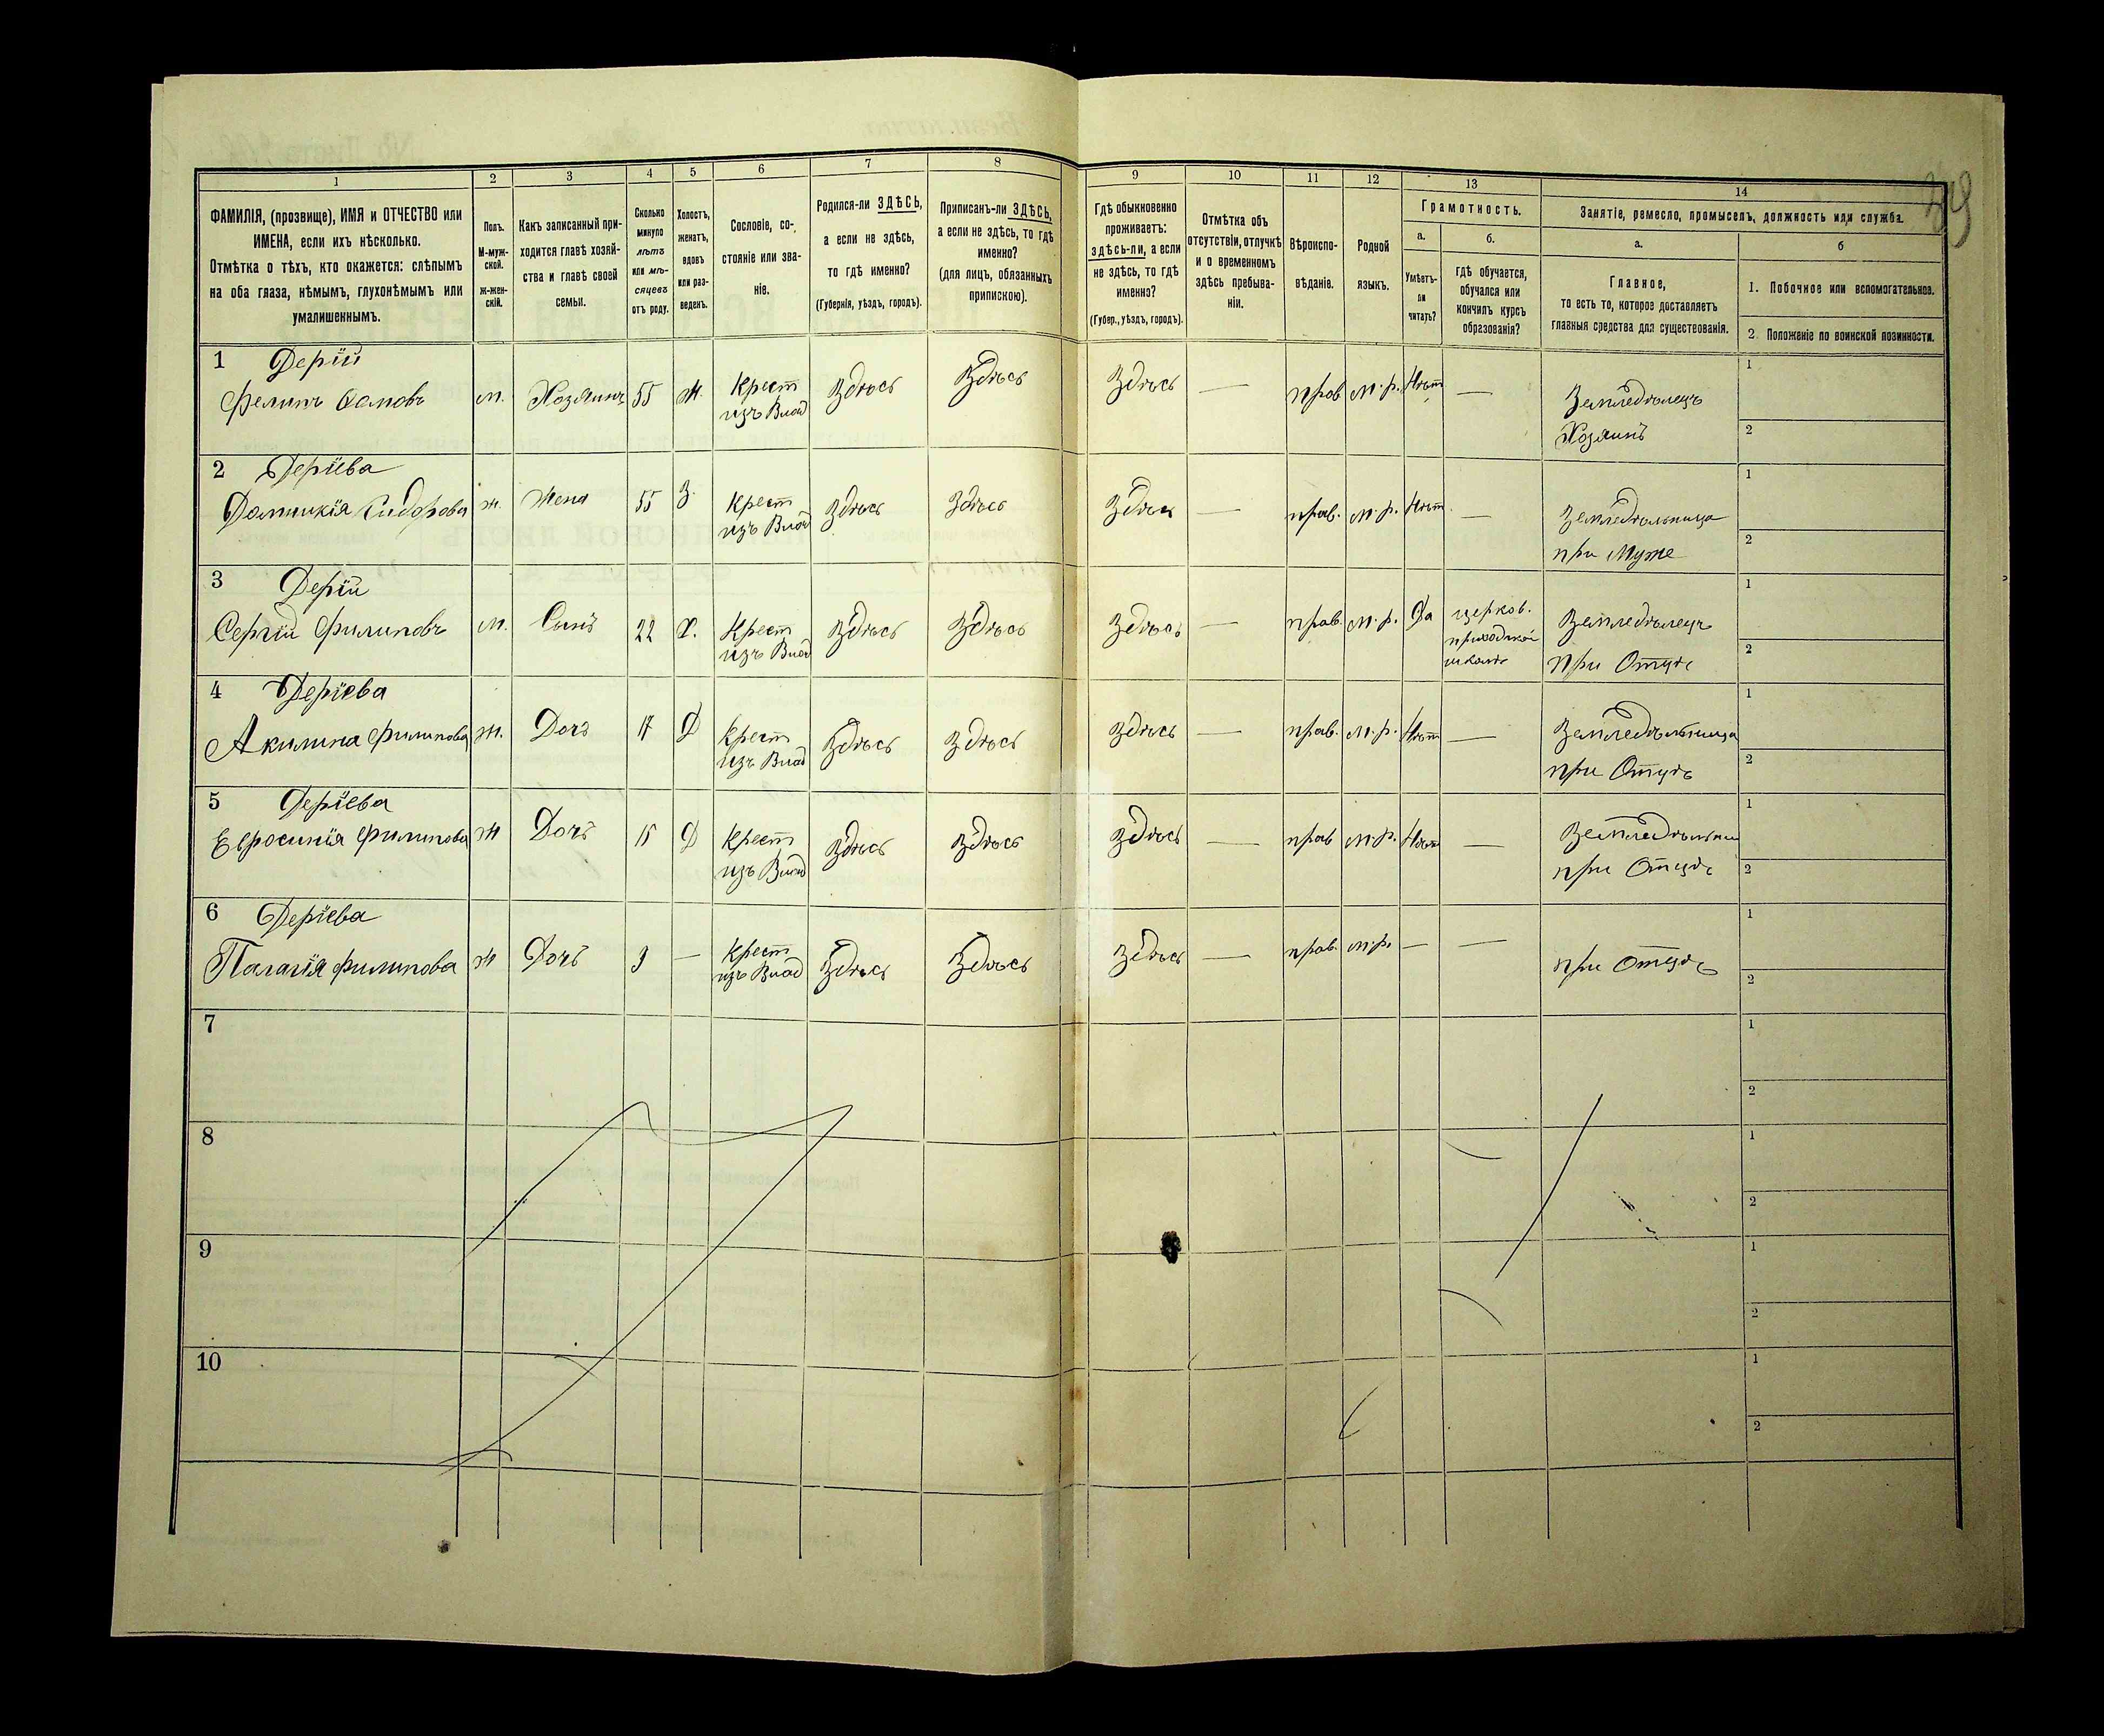 89
1 2 3 4 5 6 7 8 9 10 11 12 13 14
ФАМИЛІЯ, (прозвище), ИМЯ и ОТЧЕСТВО или
ИМЕНА, если ихъ нѣсколько.
Отмѣтка о тѣхъ, кто окажется: слѣпымъ
на оба глаза, нѣмымъ, глухонѣмымъ или
умалишеннымъ.
Полъ.
М-муж-
ской.
Ж-жен-
скій.
Какъ записанный при-
ходится главѣ хозяй-
ства и главѣ своей
семьи.
Сколько
минуло
лѣтъ
или мѣ-
сяцевъ
отъ роду.
Холостъ,
женатъ,
вдовъ
или раз-
веденъ.
Сословіе, со-
стояніе или зва-
ніе.
Родился-ли ЗДѢСЬ,
а если не здѣсь,
то гдѣ именно?
(Губернія, уѣздъ, городъ).
Приписанъ-ли ЗДѢСЬ,
а если не здѣсь, то гдѣ
именно?
(для лицъ, обязанныхъ
припискою).
Гдѣ обыкновенно
проживаетъ:
здѣсь-ли, а если
не здѣсь, то гдѣ
именно?
(Губер., уѣздъ, городъ).
Отмѣтка объ
отсутствіи, отлучкѣ
и о временномъ
здѣсь пребыва-
ніи.
Вѣроиспо-
вѣданіе.
Родной
языкъ.
Грамотность.
а.
Умѣетъ-
ли
читать?
б.
гдѣ обучается,
обучался или
кончилъ курсъ
образованія?
Занятіе, ремесло, промыселъ, должность или служба.
а.
Главное,
то есть то, которое доставляетъ
главныя средства для существованія.
б
1. Побочное или вспомогательное.
2. Положеніе по воинской повинности.
1 Дерій
Филипъ м. Хозяинъ 55 Ж. Крест Здѣсь Здѣсь Здѣсь — прав м.р. Нѣт — Земледѣлецъ 1
изъ Влад Хозяинъ 2
2 Деріева
Домникія Сидорова ж. Жена 55 З. Крест Здѣсь Здѣсь Здѣсь — прав. м.р. Нѣт — Земледѣльница 1
изъ Влад при Муже 2
3 Дерій
Сергій Филиповъ м. Сынъ 22 Х. Крест Здѣсь Здѣсь Здѣсь — прав. м.р. Да церков. Земледѣлецъ 1
изъ Влад приходской
школѣ при Отцѣ 2
4 Деріева
Акилина Филипова ж. Дочь 17 Д Крест Здѣсь Здѣсь Здѣсь — прав. м.р. Нѣт — Земледѣльница 1
изъ Влад при Отцѣ 2
5 Деріева
Евросинія Филипова ж Дочь 15 Д Крест Здѣсь Здѣсь Здѣсь — прав м.р. Нѣт — Земледѣльни 1
изъ Влад при Отцѣ 2
6 Деріева
Палагія Филипова ж Дочь 9 — Крест Здѣсь Здѣсь Здѣсь — прав. м.р. — — при Отцѣ 1
изъ Влад 2
7 1
2
8 1
2
9 1
2
10 1
2